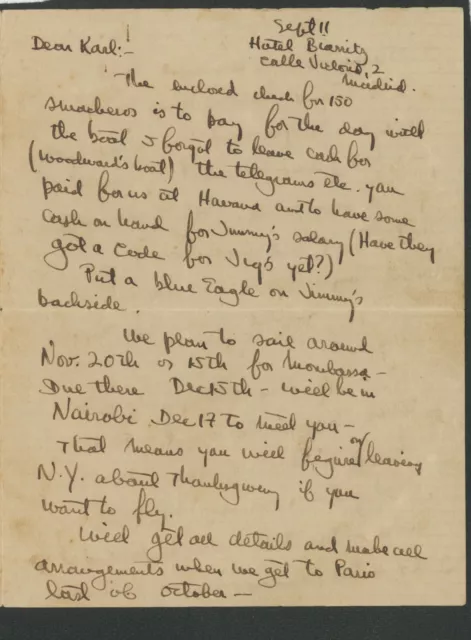 Sept 11
Dear Karl:-
Hotel Biarritz
Calle Victoria, 2
Madrid.
The enclosed check for 150
smackeros is to pay for the day with
the boat I forgot to leave cash for
(Woodward's boat) the telegrams etc. you
paid for us at Havana and to have some
cash on hand for Jimmy's salary (Have they
got a Code for Jig's yet?)
Put a blue Eagle on Jimmy's
backside.
We plan to sail around
Nov. 20th or 15th for Mombassa -
Due there Dec 15th - will be in
Nairobi Dec 17 to meet you -
That means you will figure on leaving
N.Y. about Thanksgiving if you
want to fly.
Will get all details and make all
arrangements when we get to Paris
last of October -